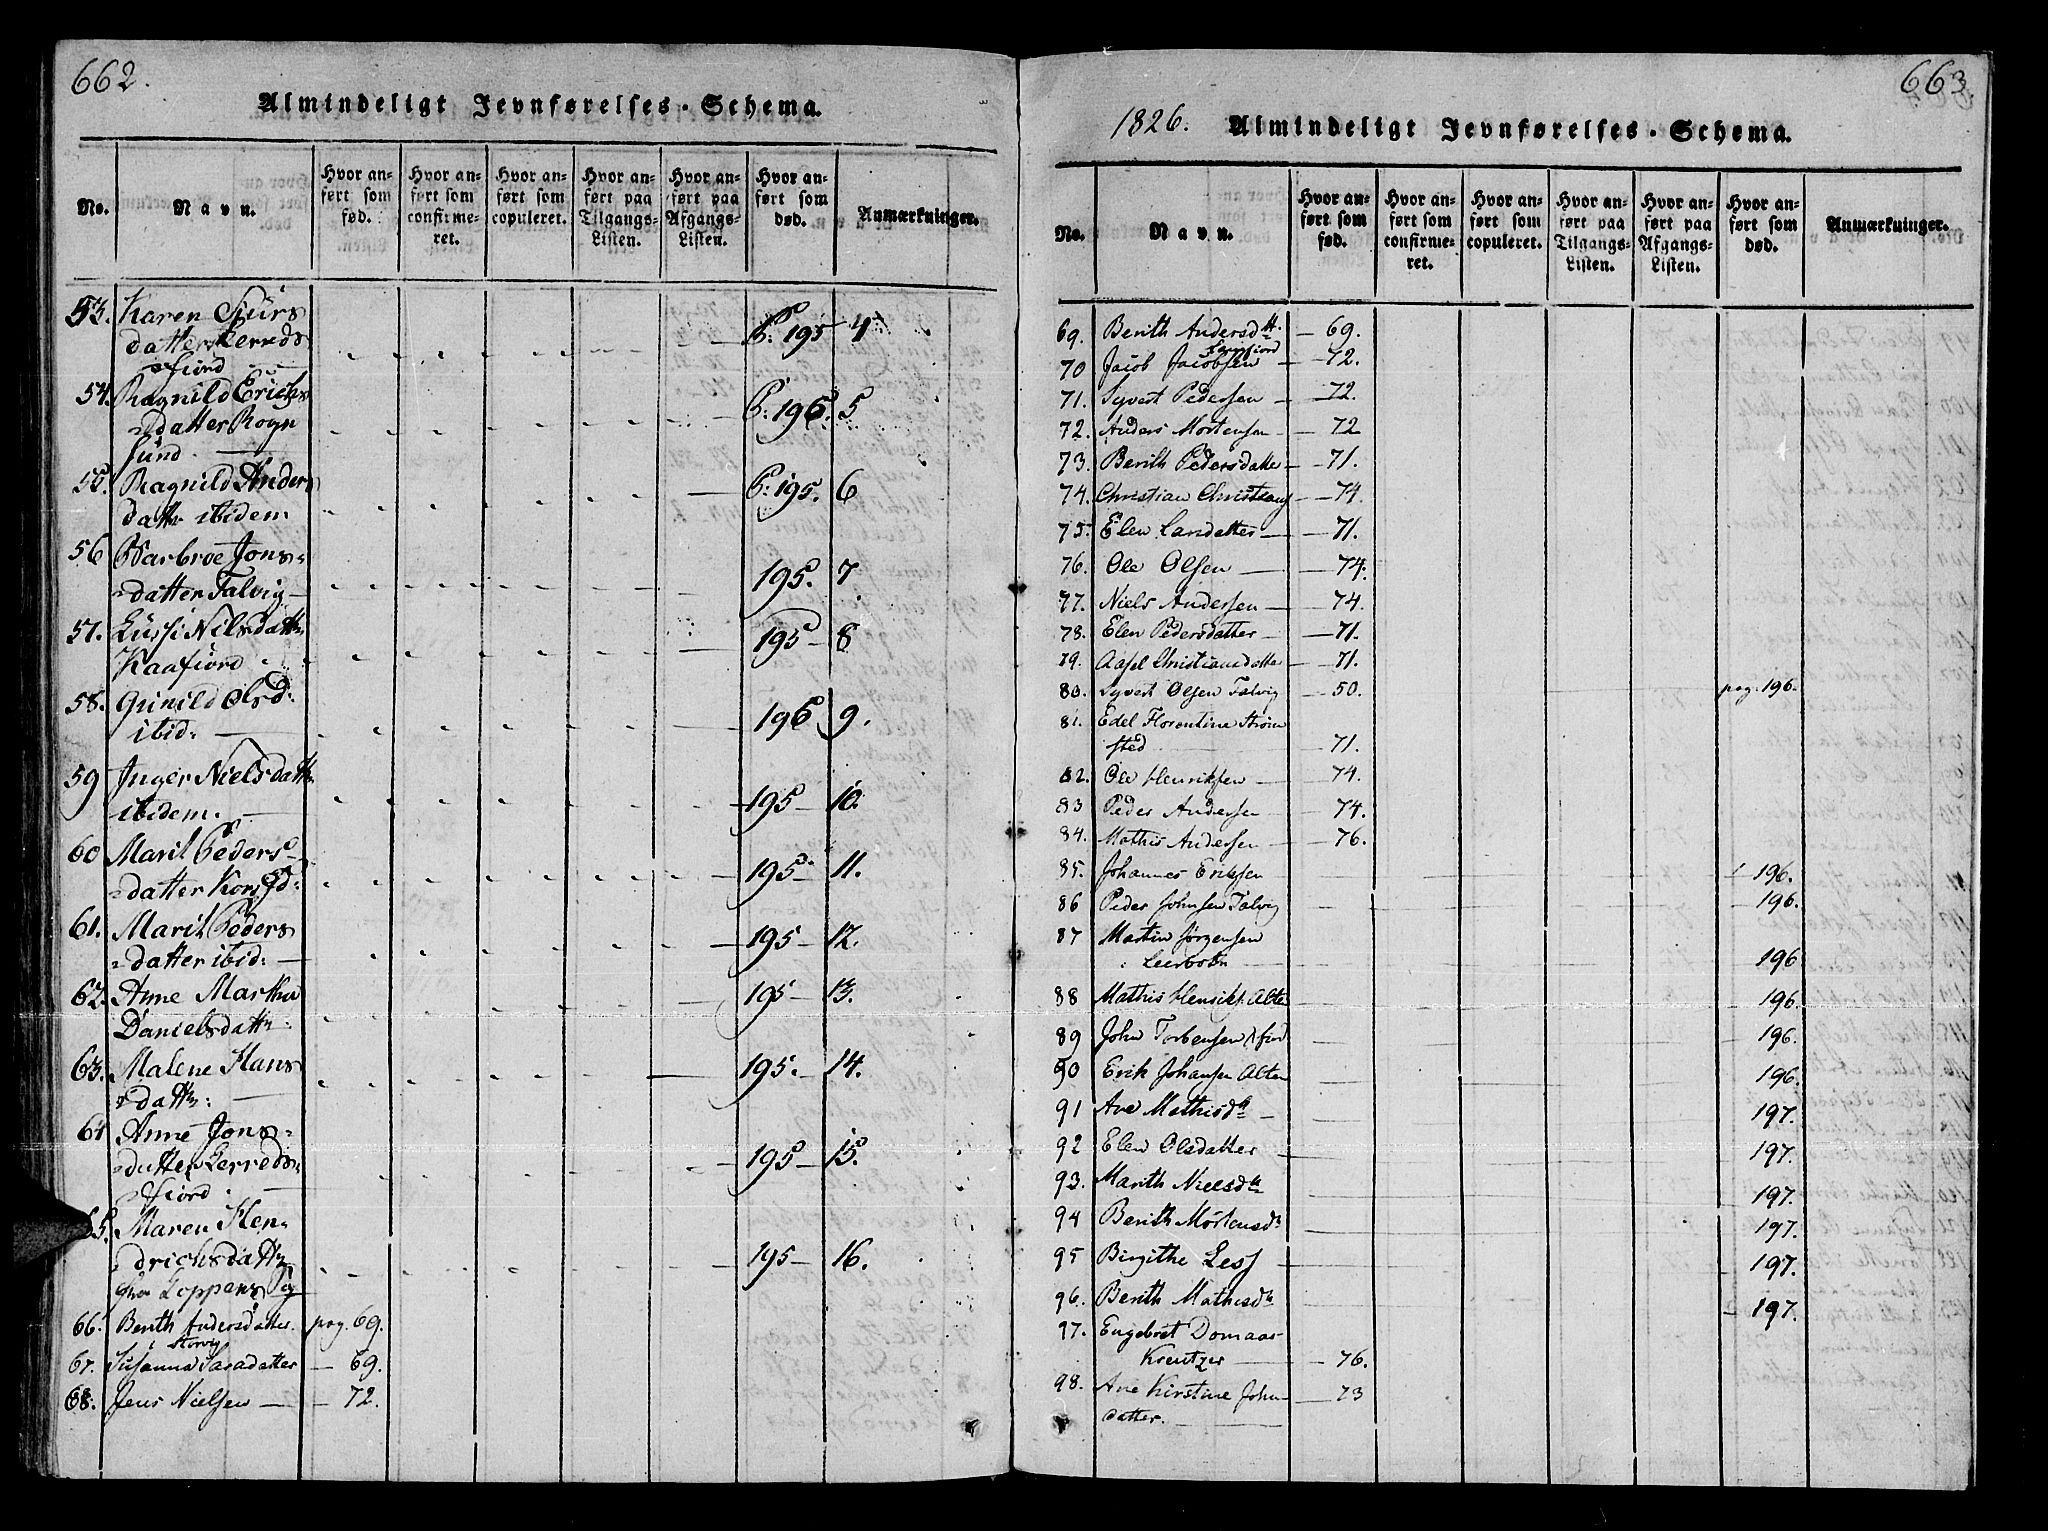 662.
Almindeligt Jevnførelses-Schema.
No.
Navn.
Hvor anført som fød.
Hvor anført som confirmeret.
Hvor anført som copuleret.
Hvor anført paa Tilgangs-Listen.
Hvor anført paa Afgangs-Listen.
Hvor anført som død.
Anmærkninger.
53. Karen Sjurs
datter Lerreds P: 195 4
fiord
54. Ragnild Erichs
datter Rogn P: 196. 5
sund
55. Ragnild Anders P: 195. 6
dattr ibidem
56 Barbroe Jons-
datter Talvig 195. 7
57. Lussi Nilsdattr 195 8
Kaafiord
58. Gunild Olsd: 196 9.
ibid:
59 Inger Nielsdattr 195 10.
ibidem.
60 Marit Peders 195 11.
datter Korsfd:
61. Marit Peders 195 12.
datter ibid:
62. Anne Martha 195 13.
Danielsdattr:
63. Malene Hans 195. 14.
dattr:
64 Anne Jons-
datter Lerreds 195 15.
fiord
65. Maren Hen-
drichsdattr 195 16.
fra Loppens Sg
66. Berith Andersdatter. pag. 69.
i Storvig
67. Susanna Saradatter 69.
68. Jens Nielsen 72.
663.
1826. Almindeligt Jevnførelses-Schema.
No.
Navn.
Hvor anført som fød.
Hvor anført som confirmeret.
Hvor anført som copuleret.
Hvor anført paa Tilgangs-Listen.
Hvor anført paa Afgangs-Listen.
Hvor anført som død.
Anmærkninger.
69. Berith Andersdtt. 69.
Langfiord
70 Jacob Jacobsen 72.
71. Syvert Pedersen 72.
72. Anders Mortensen 72
73. Berith Pedersdatter 71.
74. Christian Christians 74.
75. Elen Larsdatter 71.
76. Ole Olsen 74.
77. Niels Andersen 74.
78. Elen Pedersdatter 71.
79. Aasel Christiansdatter 71.
80. Syvert Olsen Talvig 50. pag. 196.
81. Edel Florentine Strøm
sted 71.
82. Ole Henriksen 74.
83 Peder Andersen 74.
84. Mathis Andersen 76.
85. Johannes Eriksen 196.
86 Peder Johnsen Talvig 196.
87 Martin Jørgensen
Leerbotn 196
88 Mathis Henriks. Alten 196.
89 John Torbensen 196.
90 Erik Johansen Alten 196.
91 Ane Mathisdtr 197.
92 Elen Olsdatter 197.
93. Marith Nielsdtr 197.
94 Berith Mortensdtr 197.
95 Birgithe Less 197.
96. Berith Mathisdtr 197.
97. Engebret Domaas
Kreutzer 76.
98. Ane Kirstine John 73
datter.